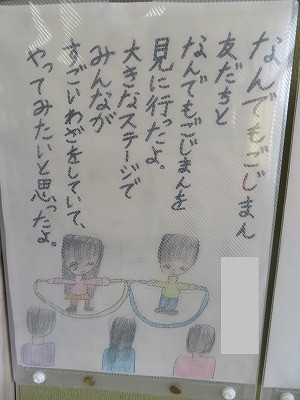 なんでもごじまん
友だちと
なんでもごじまんを
見に行ったよ。
大きなステージで
みんなが
すごいわざをしていて、
やってみたいと思ったよ。